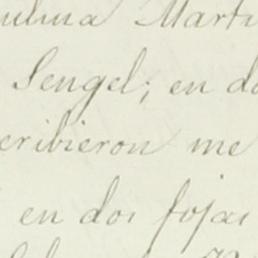 ulina Marti
Sengel; en do
cribieron me
en dos fojas